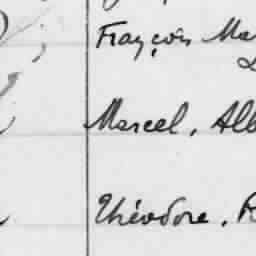 Françõis Ma
Marcel, Alb
Théodore, R